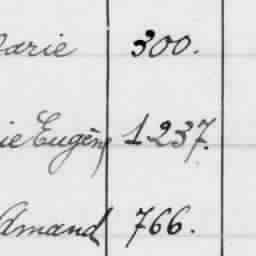 arie 300.
ie Eugène 1237.
Amand 766.